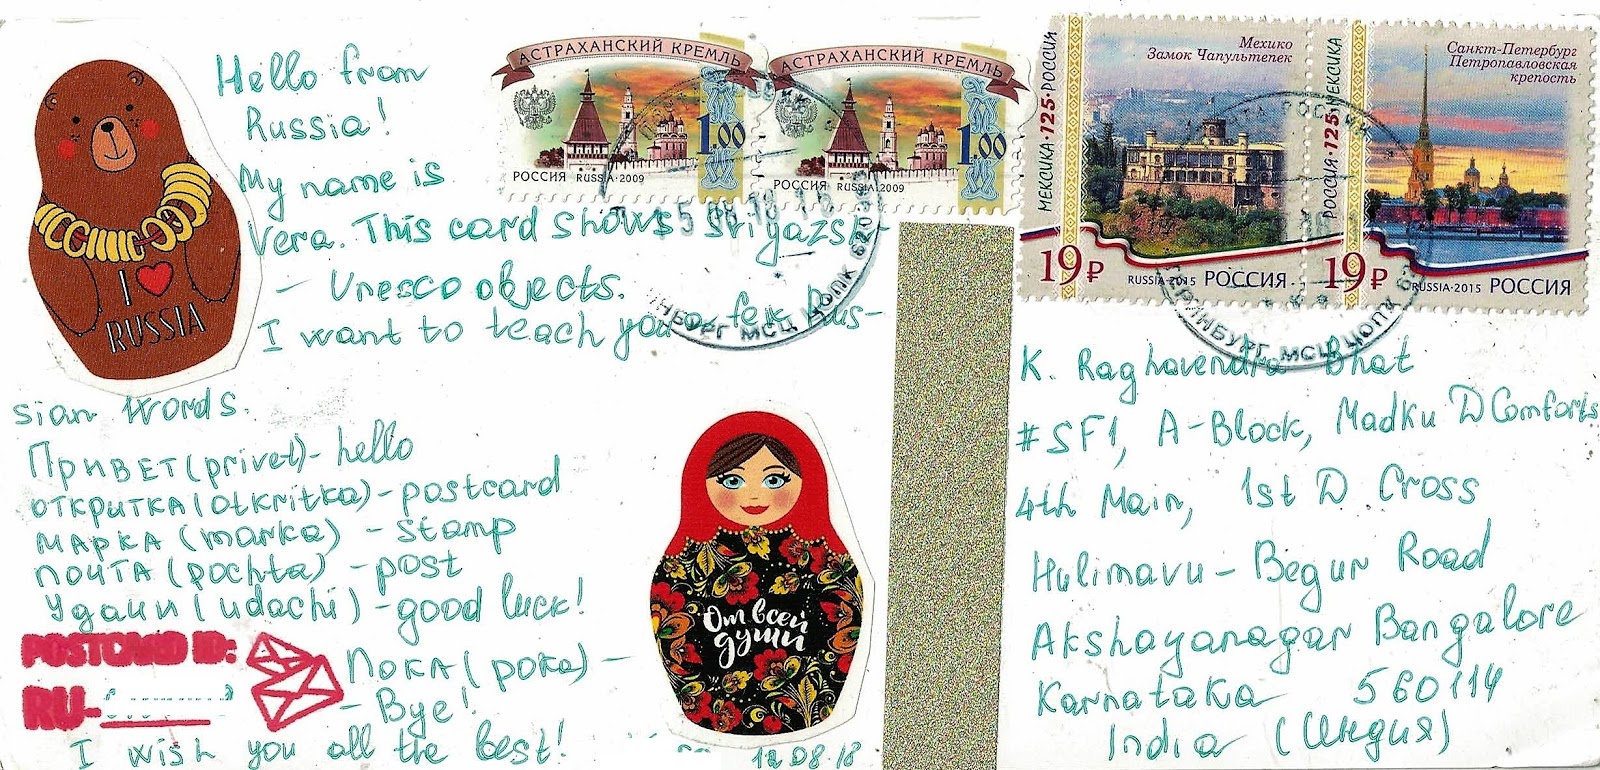 Hello from
Russia!
My name is
Vera. This card shows Sviyazsk-
- Unesco objects.
I want to teach you a few Rus-
sian words.
ПРИВЕТ (privet) - hello
ОТКРЫТКА (otkritka) - postcard
МАРКА (marka) - stamp
ПОЧТА (pochta) - post
Удачи (udachi) - good luck!
ПОКА (poka) -
- Bye!
I wish you all the best!
12.08.18
I ❤ RUSSIA
POSTCARD ID:
RU-
От всей
души
АСТРАХАНСКИЙ КРЕМЛЬ
1.00
РОССИЯ RUSSIA·2009
АСТРАХАНСКИЙ КРЕМЛЬ
1.00
РОССИЯ RUSSIA·2009
МЕКСИКА·125·РОССИЯ
Мехико
Замок Чапультепек
19₽
RUSSIA·2015 РОССИЯ
РОССИЯ·125·МЕКСИКА
Санкт-Петербург
Петропавловская
крепость
19₽
RUSSIA·2015 РОССИЯ
МСЦ ЦОПК
МСЦ ЦОПК
K. Raghavendra Bhat
#SF1, A-Block, Madku D Comforts
4th Main, 1st D Cross
Hulimavu - Begur Road
Akshayanagar Bangalore
Karnataka 560114
India (Индия)